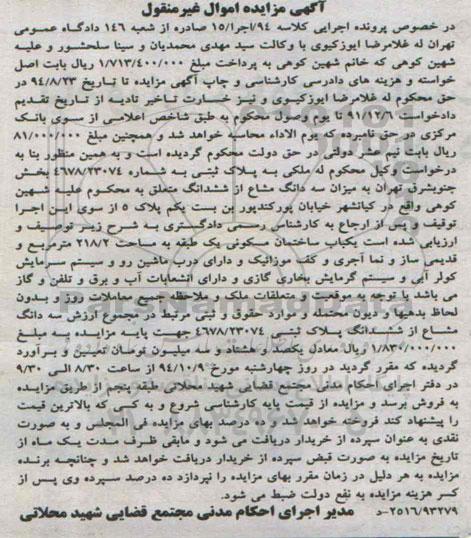 آگهی مزایده اموال غیرمنقول
در خصوص پرونده اجرایی کلاسه ۹۴/اجرا/۱۵ صادره از شعبه ۱۴۶ دادگاه عمومی
تهران له غلامرضا ایوزکیوی با وکالت سید مهدی محمدیان و سینا سلحشور و علیه
شهین کوهی که خانم شهین کوهی به پرداخت مبلغ ۱/۷۱۳/۴۰۰/۰۰۰ ریال بابت اصل
خواسته و هزینه های دادرسی کارشناسی و چاپ آگهی مزایده تا تاریخ ۹۴/۸/۲۳ در
حق محکوم له غلامرضا ایوزکیوی و نیز خسارت تاخیر تادیه از تاریخ تقدیم
دادخواست ۹۱/۱۲/۶ تا یوم وصول محکوم به طبق شاخص اعلامی از سوی بانک
مرکزی در حق نامبرده که یوم الاداء محاسبه خواهد شد و همچنین مبلغ ۸۱/۰۰۰/۰۰۰
ریال بابت نیم عشر دولتی در حق دولت محکوم گردیده است و به همین منظور بنا به
درخواست وکیل محکوم له ملکی به پلاک ثبتی به شماره ۴۶۷۸/۲۳۰۷۴ بخش
جنوبشرق تهران به میزان سه دانگ مشاع از ششدانگ متعلق به محکوم علیه شهین
کوهی واقع در کیانشهر خیابان پورکندپور بن بست یکم پلاک ۵ از سوی این اجرا
توقیف و پس از ارجاع به کارشناس رسمی دادگستری به شرح زیر توصیف و
ارزیابی شده است یکباب ساختمان مسکونی یک طبقه به مساحت ۲۱۸/۲ مترمربع و
قدیمی ساز و نما آجری و کف موزائیک و دارای درب ماشین رو و سیستم سرمایش
کولر آبی و سیستم گرمایش بخاری گازی و دارای انشعابات آب و برق و تلفن و گاز
می باشد با توجه به موقعیت و متعلقات ملک و ملاحظه جمیع معاملات روز و بدون
لحاظ بدهیها و دیون محتمله و موارد حقوقی و ثبتی مرتبط در مجموع ارزش سه دانگ
مشاع از ششدانگ پلاک ثبتی ۴۶۷۸/۲۳۰۷۴ جهت پایه مزایده به مبلغ
۱/۸۳۰/۰۰۰/۰۰۰ ریال معادل یکصد و هشتاد و سه میلیون تومان تعیین و برآورد
گردیده که مقرر گردید در روز چهارشنبه مورخ ۹۴/۱۰/۹ از ساعت ۸/۳۰ الی ۹/۳۰
در دفتر اجرای احکام مدنی مجتمع قضایی شهید محلاتی طبقه پنجم از طریق مزایده
به فروش برسد و مزایده از قیمت پایه کارشناسی شروع و به کسی که بالاترین قیمت
را پیشنهاد کند فروخته خواهد شد و ده درصد بهای مزایده فی المجلس و به صورت
نقدی به عنوان سپرده از خریدار دریافت می شود و مابقی ظرف مدت یک ماه از
تاریخ مزایده به صورت قبض سپرده از خریدار دریافت خواهد شد و چنانچه برنده
مزایده به هر دلیل در زمان مقرر بهای مزایده را نپردازد ده درصد سپرده وی پس از
کسر هزینه مزایده به نفع دولت ضبط می شود.
۲۵۱۶/۹۳۲۷۹-د مدیر اجرای احکام مدنی مجتمع قضایی شهید محلاتی